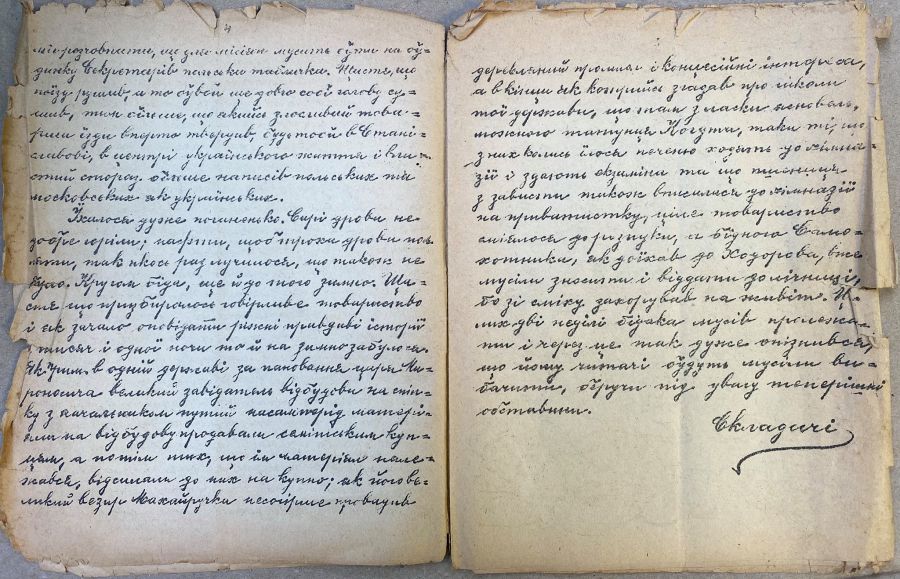 4
міг розчовпати, що для місіян мусить бути на бу-
динку Секретарів польська табличка. Щастє, що
поїзд рушив, а то бувби ще довго собі голову су-
шив, тим більше, що якийсь злосливий това-
риш їзди вперто твердив, будьтоби в Стані-
славові, в центрі українського життя і
стий сторож більше написів польських та
московських як українських.
Їхалося дуже поганенько. Сирі дрова не-
добре горіли; нафти, щоб троха дрова пол-
ляти, так якось раз лучилося, що також не
було. Кругом біда, ще й до того зимно. Ща-
стя що прибиралось говірливе товариство
і як зачало оповідати ріжні правдиві історії
з тисяч і одної ночи то й на зимно забулося.
Як прим. в одній державі за пановання царя Ми-
роносича великий завідатель відбудови на спіл-
ку з начальником путий насамперід матері-
яли на відбудову продавали самітським куп-
цям, а потім тих, що їм матеріял нале-
жався, відсилали до них на купно; як його ве-
ликий везир Махайручка несовірше провадив
деревляний промисл і концесійні інтереса,
а в кінци як котрийсь згадав про школи
тої держави, що там з ласки ясновель-
можного татунця Когута, таки ті, що
з них колись їлося печеню ходять до гімна-
зії і здають екзаміна та що
з зависти також вписалася до гімназії
на приватистку, ціле товариство
сміялося до розпуки, а бідного Само-
хотника, як доїхав до Ходорова, вже
мусіли зносити і віддати до лічниці,
бо зі сміху захорував на живіт. Ці-
лих дві неділі бідака мусів пролежа-
ти і через це так дуже опізнився,
що йому читачі будуть мусіли ви-
бачити, беручи під увагу теперішні
обставини.
Складачі